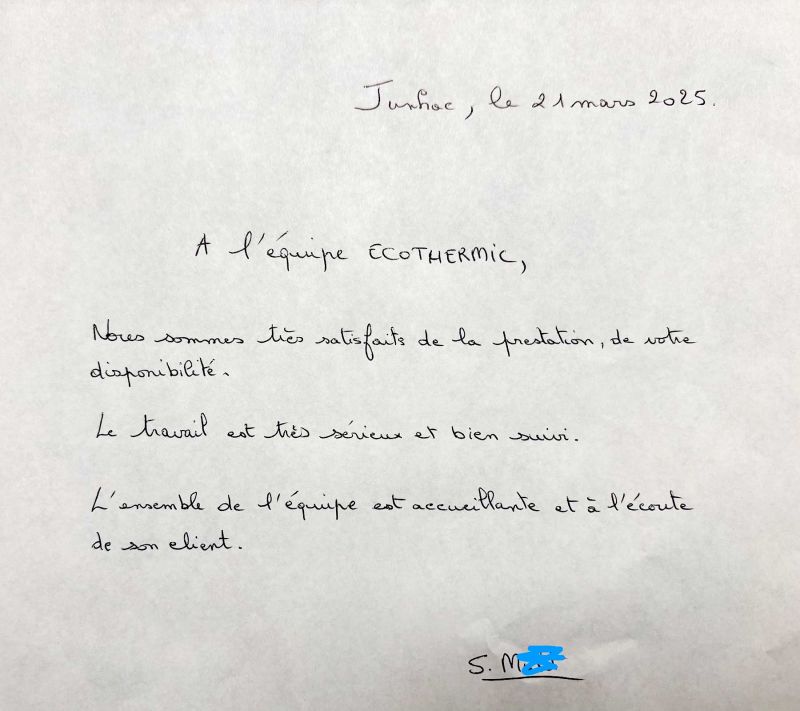 Junhac, le 21 mars 2025.
A l'équipe ECOTHERMIC,
Nous sommes très satisfaits de la prestation, de votre
disponibilité.
Le travail est très sérieux et bien suivi.
L'ensemble de l'équipe est accueillante et à l'écoute
de son client.
S. M